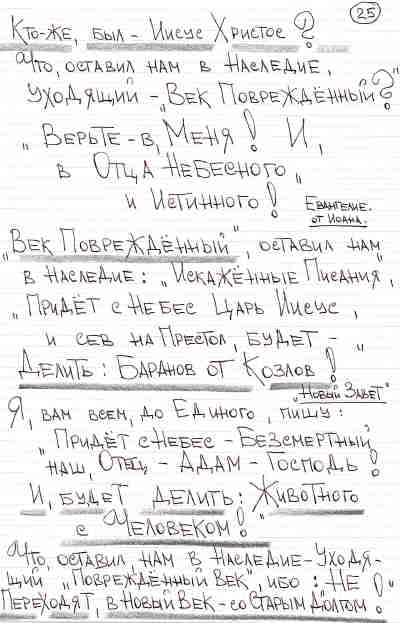 25
Кто-же, был - Иисус Христос?
Что, оставил нам в наследие,
уходящий - „Век Повреждённый"?
„Верьте-в, Меня! И,
в Отца Небесного„
и Истинного!
Евангелие.
от Иоана.
„Век Повреждённый", оставил нам
в наследие: „Искажённые Писания",
„Придёт с Небес Царь Иисус,
и сев на Престол, будет -
Делить: Баранов от Козлов!"
„Новый Завет"
Я, вам всем, до Единого, пишу:
„Придёт с Небес - Безсмертный
наш, Отец - Адам - Господь!
И, будет делить: Животного
с Человеком!"
Что, оставил нам в наследие - уходя-
щий „Повреждённый Век", ибо: Не
переходят, в Новый Век - со Старым Долгом!